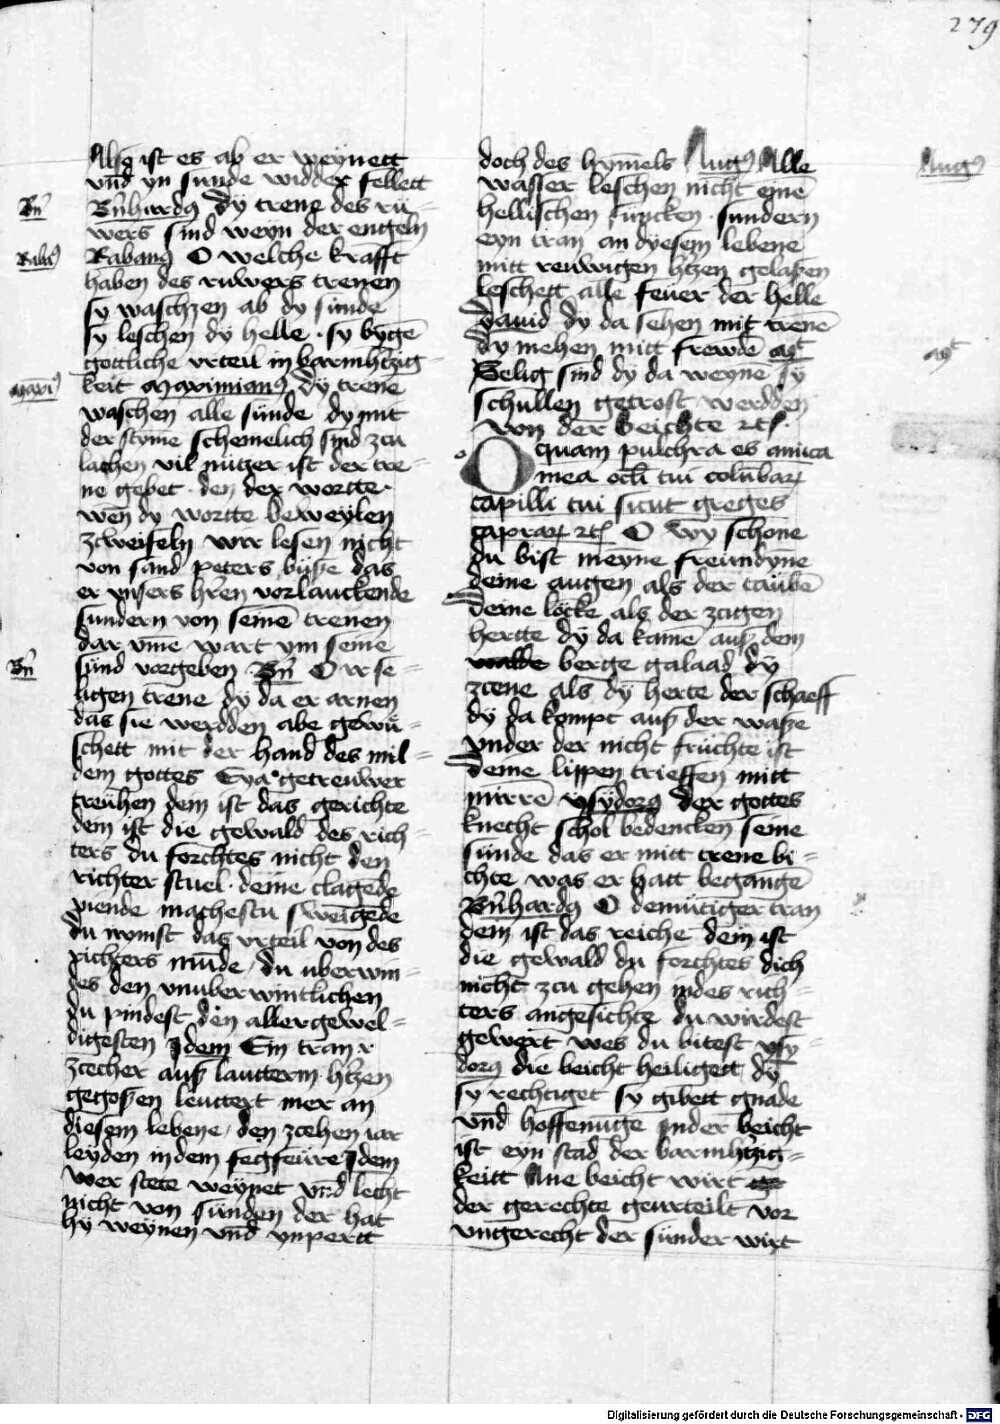 279
Also ist es ab er weynett
vnd yn sunde widder fellett
Bn̄
Bn̄hardꝰ dy trene des ru-
wers sind weyn der engeln
Rabāꝰ
Rabanꝰ O welche krafft
haben des ruwers trenen
sy waschzen ab dy sunde
sy leschen dy helle · sy bygē
gottliche vrteil in barmh̄tzig-
Maxīꝰ
keit Maximianꝰ dy trene
waschen alle sünde dy mit
der styme schemelich sind zcu
lachen vil nützer ist der tre-
ne gebet · den der wortte ·
wen dy wortte beweylen
zcweifeln wir lesen nicht
von sand peters büsze das
er vnsers h̄ren vorlauckende
sundern von seinē trenen
dar vm̄e wart ym seine
Bn̄
sünd vorgeben Bn̄ O ir se-
ligen trene dy da er arnen
das sie werdden abe gewü-
schett mit der hand des mil-
dem gottes Eya getreuwer
treühen dem ist das gerichte
dem ist die gewald des rich-
ters du forchtes nicht den
richter stuel · deine clagēde
viende machestu sweigēde
du nymst das vrteil von des
richters mūde / du uberwin-
des den vnuberwintlichen
du pindest den allergewel-
digesten Idem Ein tran r
zcecher ausz lautterm h̄tzen
gegoszen leuttert mer an
diesem lebene / den zcehen iar
leyden indem fegfeüre Idem
wer stete weynet vnd lecht
nicht von sünden der hat
hy weynen vnd ynpertt
doch des hym̄els Augꝰ Alle
Augꝰ
wasser leschen nicht einē
hellischen funcken · sundern
eyn tran an dyesem lebene
mitt reuwigen h̄tzen gelaszen
leschett alle feuer der helle
dauid dy da sehen mit trenē
dy mehen mitt frewdē agᵗ
agᵗ
Selig sind dy da weyne sy
schullen getrost werdden
von der beichte ꝛcᷤ.
O quam pulchra es amica
mea ocl̄i tui colūbaꝝ
capilli tui sicut greges
capraꝝ ꝛcᷤ O wy schone
du bist meyne freündyne
deine augen als der taubē
deine löcke als der zcigen
hertte dy da kame ausz dem
walde berge galaad dy
zcene als dy herte der schaeff
dy da kompt ausz der wasze
vnder der nicht früchte ist
deine lippen trieffen mitt
mirrē ysydorꝰ der gottes
knecht schol bedencken seine
sünde das er mitt trene bi-
chte was er hatt begangē
Bn̄hardꝰ O demütiger tran
dem ist das reiche dem ist
die gewald du forchtes dich
nicht zcu gehen indes rich-
ters angesichte du wirdest
gewert wes du bitest ysy-
dorꝰ die beicht heiligett dy
sy rechtiget sy gibett gnade
vnd hoffenunge inder beicht
ist eyn stad der barmh̄tzig-
keitt Ane beicht wirt
der gerechte geurteilt vor
vngerecht der sünder wirt
Digitalisierung gefördert durch die Deutsche Forschungsgemeinschaft - DFG